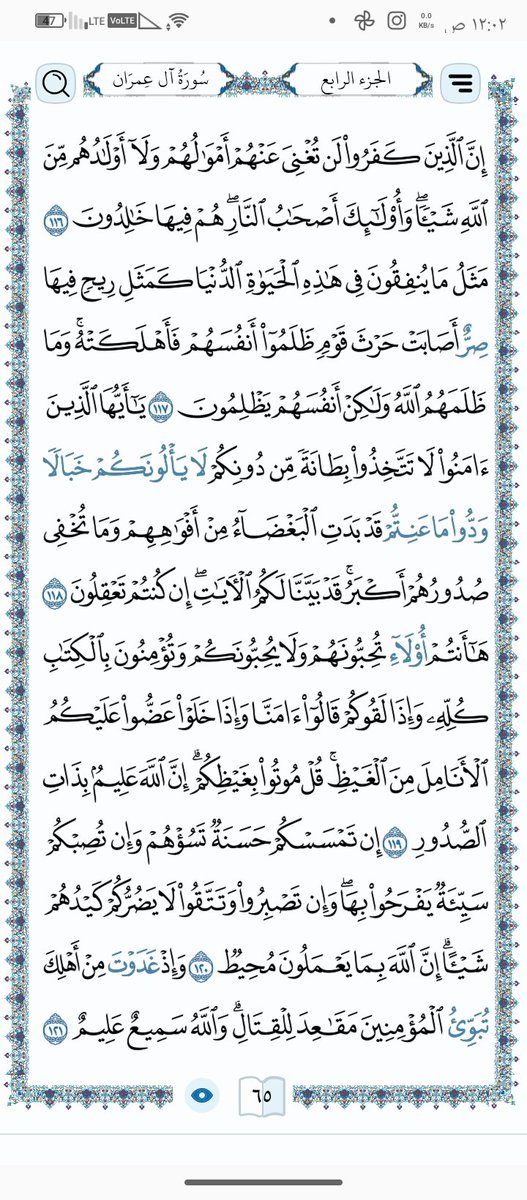 47 LTE VoLTE 0.0 KB/s ١٢:٠٢ ص
الجزء الرابع سُورَةُ آل عِمرَان
إِنَّ ٱلَّذِينَ كَفَرُواْ لَن تُغۡنِيَ عَنۡهُمۡ أَمۡوَٰلُهُمۡ وَلَآ أَوۡلَٰدُهُم مِّنَ
ٱللَّهِ شَيۡـٔٗاۖ وَأُوْلَٰٓئِكَ أَصۡحَٰبُ ٱلنَّارِۖ هُمۡ فِيهَا خَٰلِدُونَ ١١٦
مَثَلُ مَا يُنفِقُونَ فِي هَٰذِهِ ٱلۡحَيَوٰةِ ٱلدُّنۡيَا كَمَثَلِ رِيحٖ فِيهَا
صِرٌّ أَصَابَتۡ حَرۡثَ قَوۡمٖ ظَلَمُوٓاْ أَنفُسَهُمۡ فَأَهۡلَكَتۡهُۚ وَمَا
ظَلَمَهُمُ ٱللَّهُ وَلَٰكِنۡ أَنفُسَهُمۡ يَظۡلِمُونَ ١١٧ يَٰٓأَيُّهَا ٱلَّذِينَ
ءَامَنُواْ لَا تَتَّخِذُواْ بِطَانَةٗ مِّن دُونِكُمۡ لَا يَأۡلُونَكُمۡ خَبَالٗا
وَدُّواْ مَا عَنِتُّمۡ قَدۡ بَدَتِ ٱلۡبَغۡضَآءُ مِنۡ أَفۡوَٰهِهِمۡ وَمَا تُخۡفِي
صُدُورُهُمۡ أَكۡبَرُۚ قَدۡ بَيَّنَّا لَكُمُ ٱلۡأٓيَٰتِۖ إِن كُنتُمۡ تَعۡقِلُونَ ١١٨
هَٰٓأَنتُمۡ أُوْلَآءِ تُحِبُّونَهُمۡ وَلَا يُحِبُّونَكُمۡ وَتُؤۡمِنُونَ بِٱلۡكِتَٰبِ
كُلِّهِۦ وَإِذَا لَقُوكُمۡ قَالُوٓاْ ءَامَنَّا وَإِذَا خَلَوۡاْ عَضُّواْ عَلَيۡكُمُ
ٱلۡأَنَامِلَ مِنَ ٱلۡغَيۡظِۚ قُلۡ مُوتُواْ بِغَيۡظِكُمۡۗ إِنَّ ٱللَّهَ عَلِيمُۢ بِذَاتِ
ٱلصُّدُورِ ١١٩ إِن تَمۡسَسۡكُمۡ حَسَنَةٞ تَسُؤۡهُمۡ وَإِن تُصِبۡكُمۡ
سَيِّئَةٞ يَفۡرَحُواْ بِهَاۖ وَإِن تَصۡبِرُواْ وَتَتَّقُواْ لَا يَضُرُّكُمۡ كَيۡدُهُمۡ
شَيۡـًٔاۗ إِنَّ ٱللَّهَ بِمَا يَعۡمَلُونَ مُحِيطٞ ١٢٠ وَإِذۡ غَدَوۡتَ مِنۡ أَهۡلِكَ
تُبَوِّئُ ٱلۡمُؤۡمِنِينَ مَقَٰعِدَ لِلۡقِتَالِۗ وَٱللَّهُ سَمِيعٌ عَلِيمٌ ١٢١
٦٥